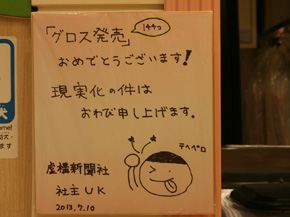 「グロス発売」
おめでとうございます!
現実化の件は
おわび申し上げます。
テヘペロ
虚構新聞社
社主UK
2013.7.10